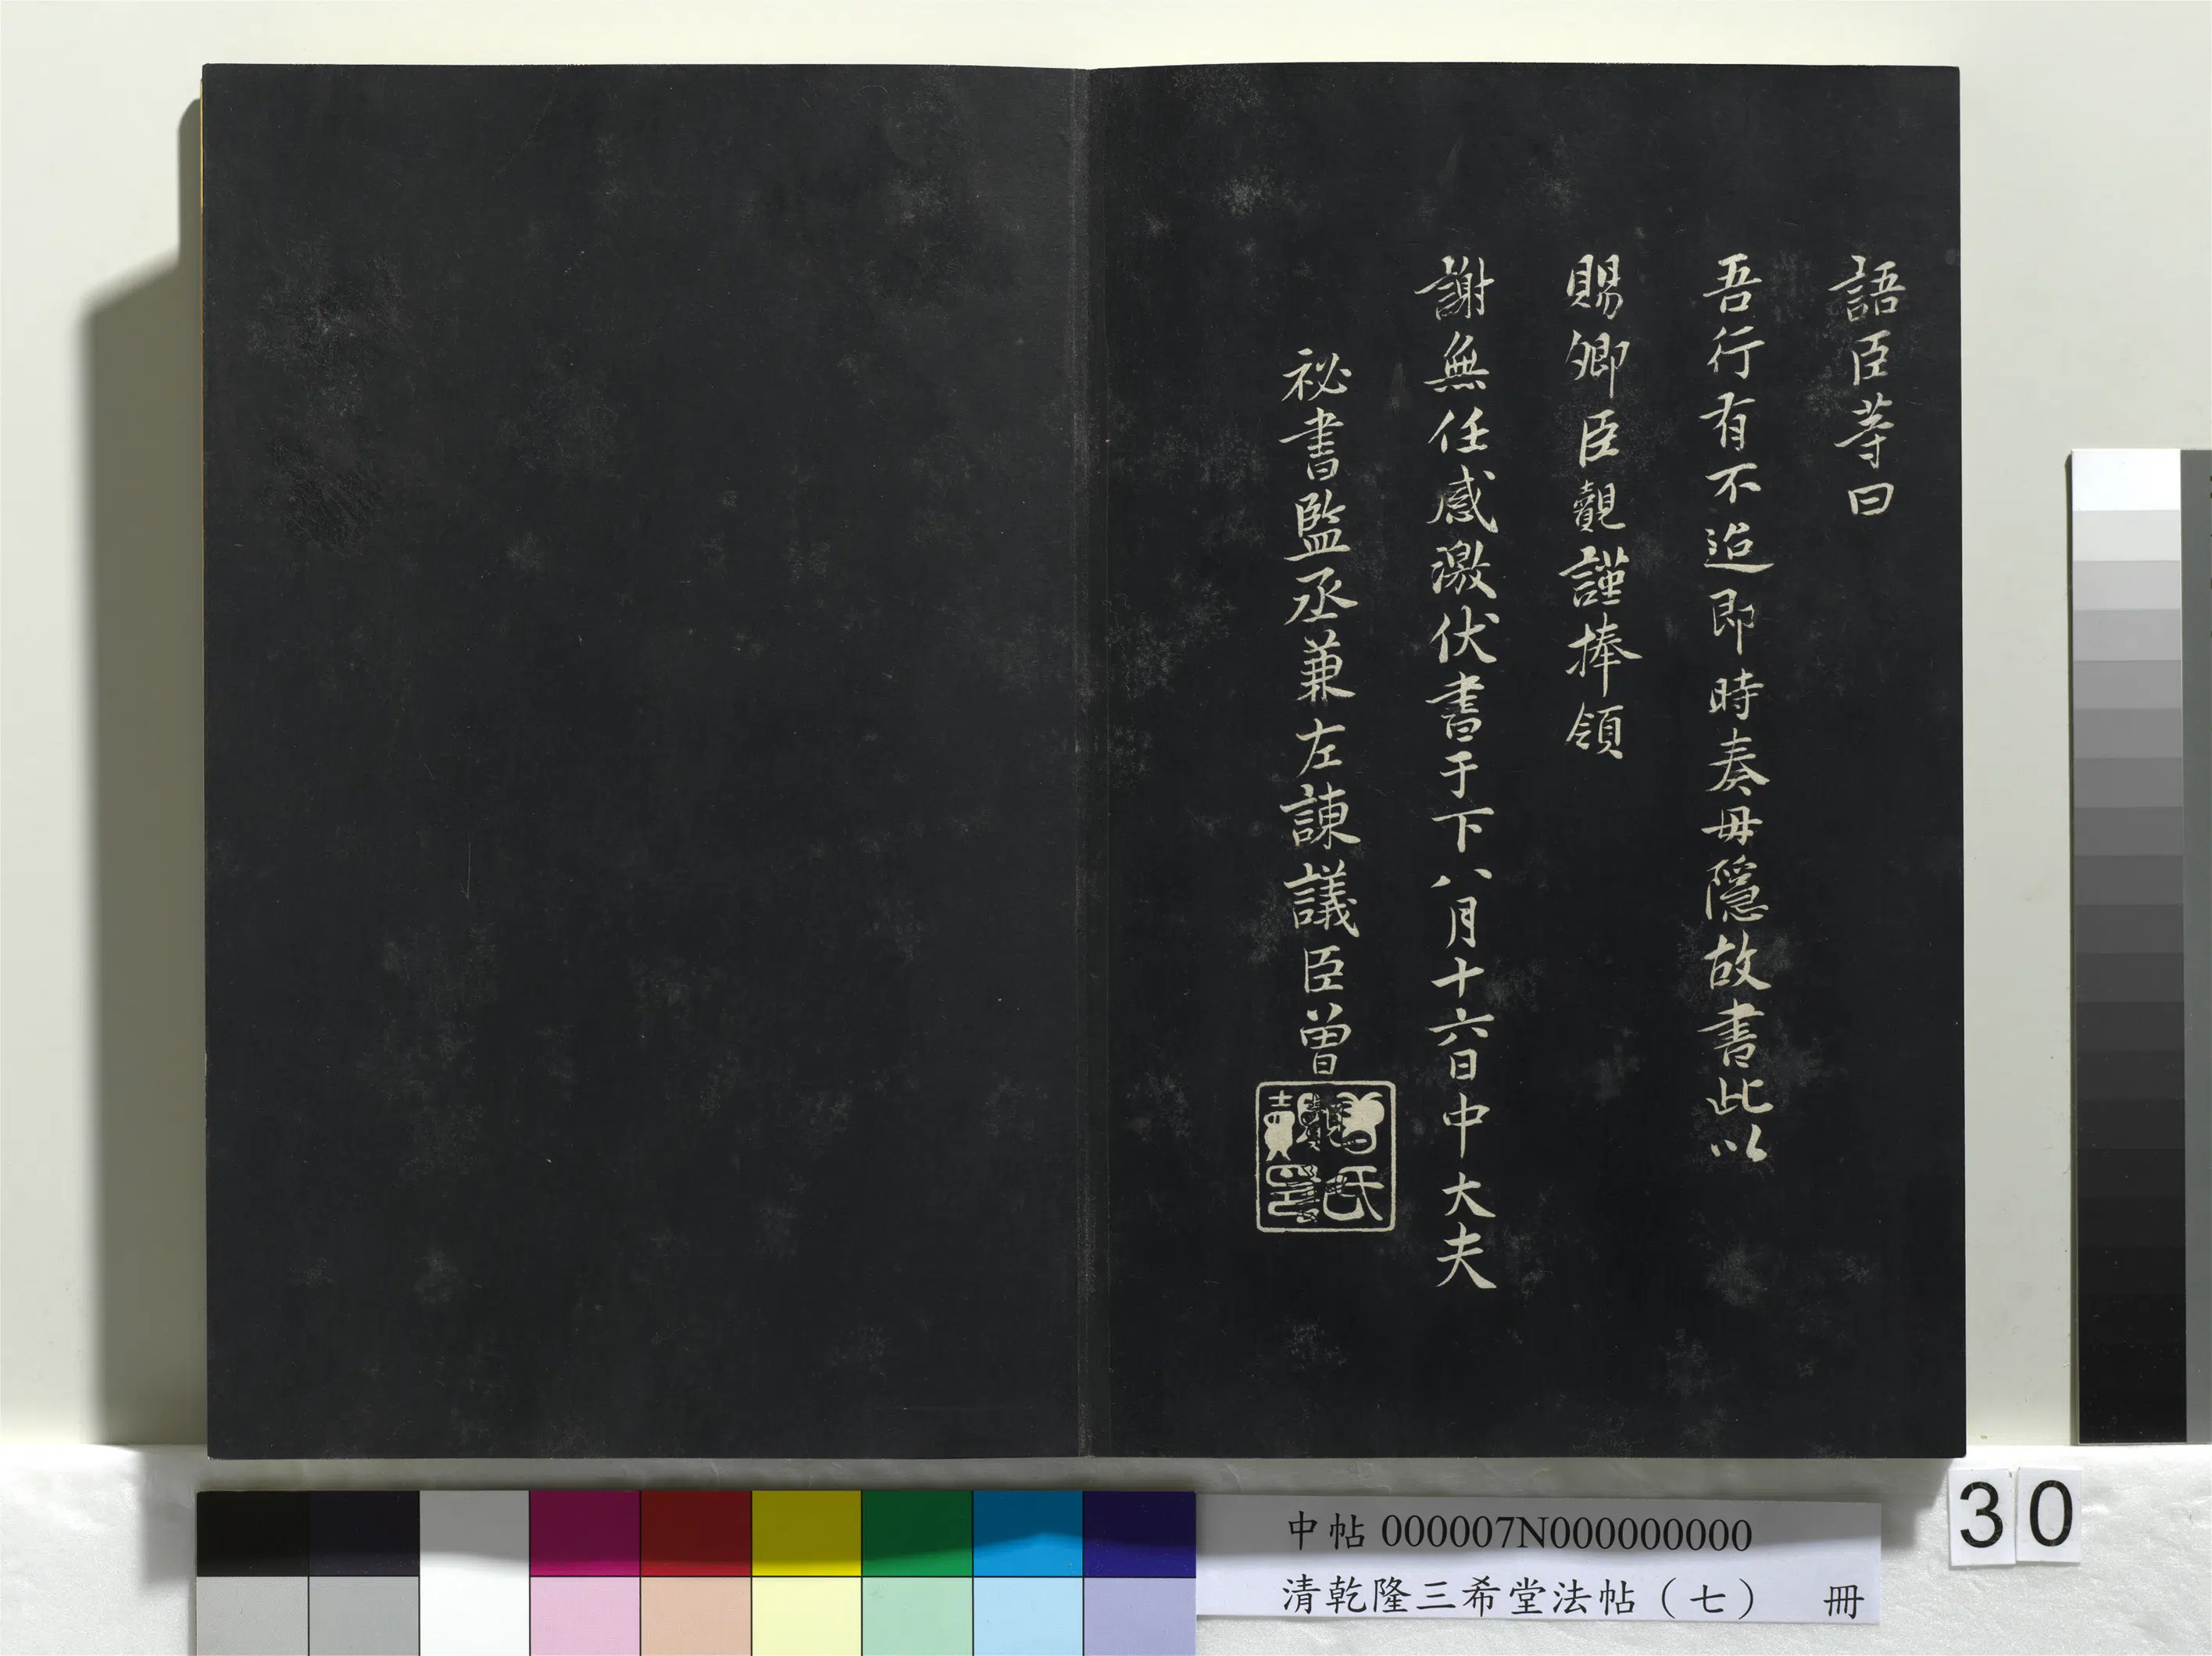 語臣等曰
吾行有不迨即時奏毋隱故書此以
賜卿臣覿謹捧領
謝無任感激伏書于下八月十六日中大夫
祕書監丞兼左諫議臣曾覿
曾氏覿印
中帖 000007N000000000
清乾隆三希堂法帖（七） 冊
30